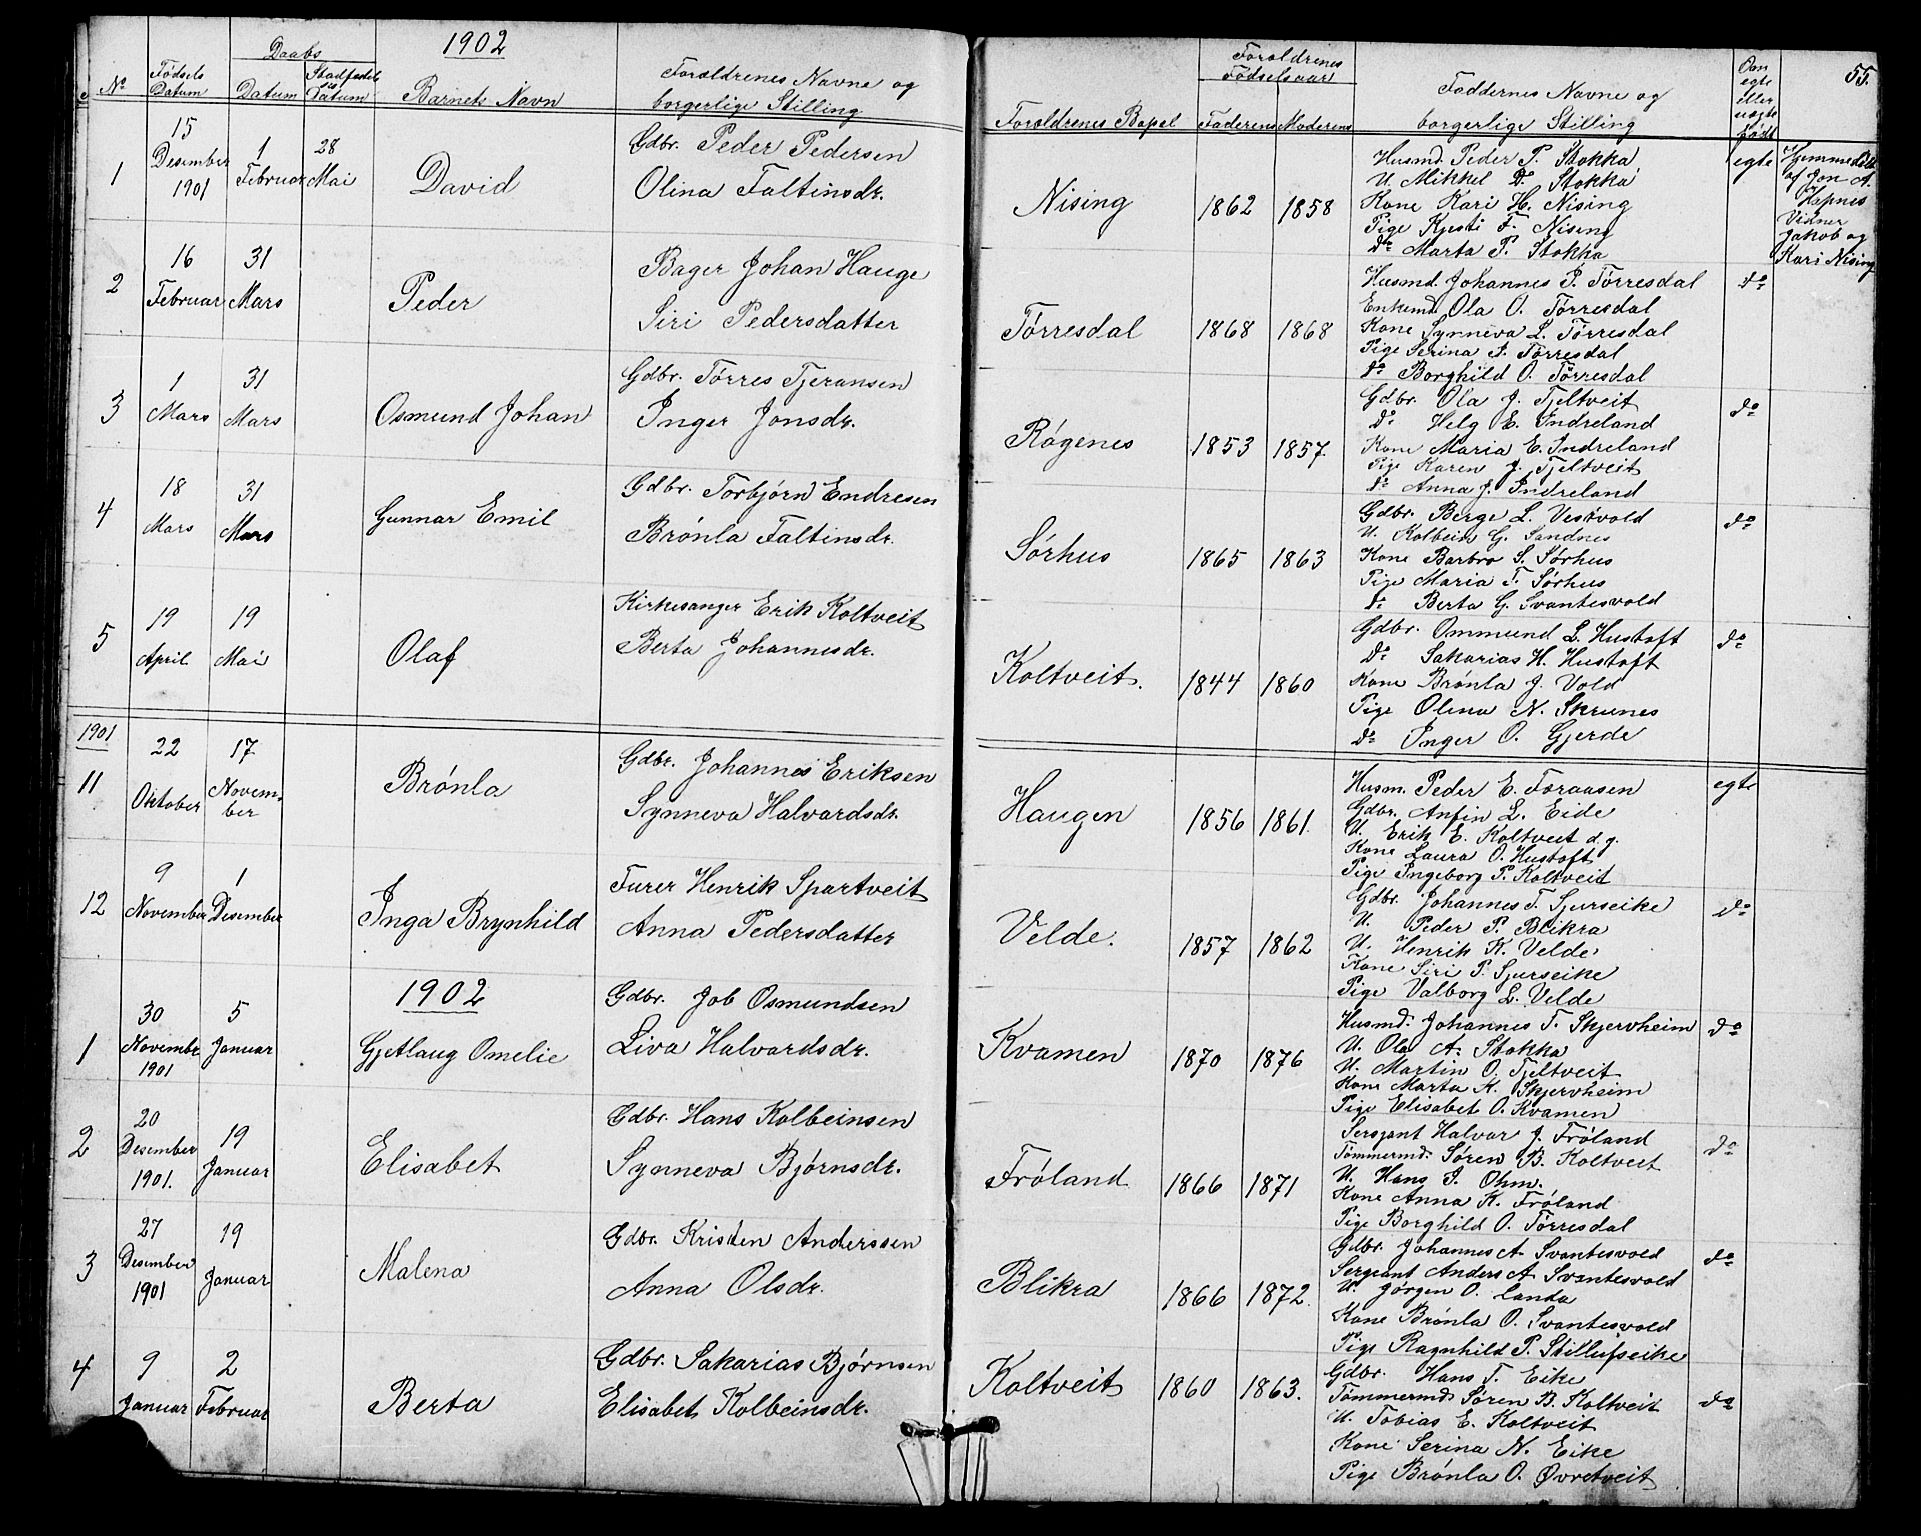 1902
55.
No
Fødsels Datum
Daabs Datum
Stadfæstelses Datum
Barnets Navn
Forældrenes Navne og borgerlige Stilling
Forældrenes Bopæl
Forældrenes Fødselsaar
Faderens
Moderens
Faddernes Navne og borgerlige Stilling
Om egte eller uægte født
1
15 Desember 1901
1 Februar
28 Mai
David
Gdbr. Peder Pedersen
Olina Faltinsdr.
Nising
1862
1858
Husmd. Peder P. Stokka
U. Mikkel D. Stokka
Kone Kari H. Nising
Pige Kjesti F. Nising
do Marta P. Stokka
egte
Hjemmedøbt
af Jon A.
Hapnes
Vidner
Jakob og
Kari Nising
2
16 Februar
31 Mars
Peder
Bager Johan Hauge
Siri Pedersdatter
Tørresdal
1868
1868
Husmd. Johannes P. Tørresdal
Enkemd. Ola O. Tørresdal
Kone Synneva L. Tørresdal
Pige Serina P. Tørresdal
do Borghild O. Tørresdal
do
3
1 Mars
31 Mars
Osmund Johan
Gdbr. Tørres Tjeransen
Inger Jonsdr.
Røgenes
1853
1857.
Gdbr. Ola J. Tjeltveit
do Helg E. Indreland
Kone Maria E. Indreland
Pige Karen J. Tjeltveit
do Anna J. Indreland
do
4
18 Mars
31 Mars
Gunnar Emil
Gdbr. Torbjørn Endresen
Brønla Faltinsdr.
Sørhus
1865
1863
Gdbr. Berge L. Vestvold
U. Kolbein G. Sandnes
Kone Barbro S. Sørhus
Pige Maria T. Sørhus
do Berta G. Svantesvold
do
5
19 April
19 Mai
Olaf
Kirkesanger Erik Koltveit
Berta Johannesdr.
Koltveit.
1844
1860
Gdbr. Ommund L. Hustoft
Do Sakarias H. Hustoft
Kone Brønla J. Vold
Pige Olina N. Skrunes
do Inger O. Gjerde
do
1901
11
22 Oktober
17 November
Brønla
Gdbr. Johannes Eriksen
Synneva Halvardsdr.
Haugen
1856
1861.
Husm. Peder E. Foraasen
Gdbr. Anfin L. Eide
U. Erik E. Koltveit d. y.
Kone Laura O. Hustoft
Pige Ingeborg P. Koltveit
egte
12
9 November
1 Desember
Inga Brynhild
Furer Henrik Spartveit
Anna Pedersdatter
Velde.
1857
1862
Gdbr. Johannes T. Sjurseike
U. Peder P. Blikra
U. Henrik K. Velde
Kone Siri P. Sjurseike
Pige Valborg L. Velde
do
1902
1
30 Novembr 1901
5 Januar
Gjetlaug Omelie
Gdbr. Job Osmundsen
Liva Halvardsdr.
Kvamen
1870
1876
Husmd. Johannes T. Skjervheim
U. Ola A. Stokka
U. Martin O. Tjeltveit
Kone Marta K. Skjervheim
Pige Elisabet O. Kvamen
do
2
20 Desember 1901.
19 Januar
Elisabet
Gdbr. Hans Kolbeinsen
Synneva Bjørnsdr.
Frøland
1866
1871
Sersjant Halvar J. Frøland
Tømmermd. Søren B. Koltveit
U. Hans J. Ohm.
Kone Anna K. Frøland
Pige Borghild O. Tørresdal
do
3
27 Desember 1901
19 Januar
Malena
Gdbr. Kristen Anderssen
Anna Olsdr.
Blikra
1866
1872.
Gdbr. Johannes A. Svantesvold
Sergeant Anders A. Svantesvold
U. Jørgen O. Landa
Kone Brønla O. Svantesvold
Pige Ragnhild P. Stillufseike
do
4
9 Januar
2 Februar
Berta
Gdbr. Sakarias Bjørnsen
Elisabet Kolbeinsdr.
Koltveit
1860
1863.
Gdbr. Hans T. Eike
Tømmermd. Søren B. Koltveit
U. Tobias E. Koltveit
Kone Serina N. Eike
Pige Brønla O. Øvretveit
do